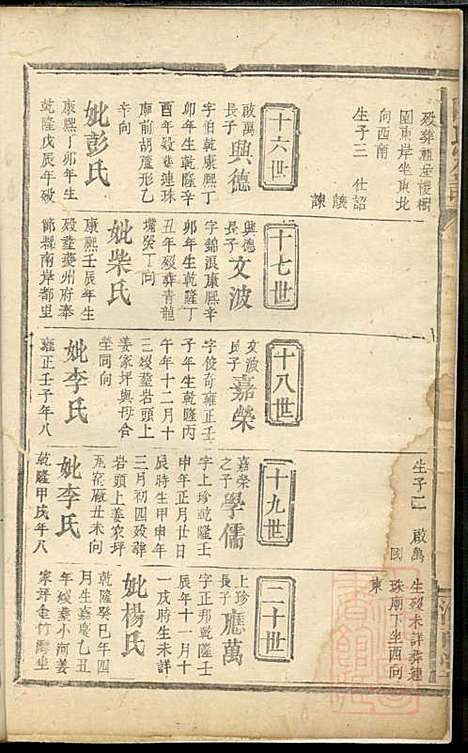 歿葬祖塋後樹
園東岸坐東北
向西南
生子三 仕詔
諫
十六世
啟萬
長子
興德
字伯乾康熙丁
卯年生乾隆辛
酉年歿葬蓮珠
庫前胡蘆形乙
辛向
妣彭氏
康熙丁卯年生
乾隆戊辰年歿
十七世
興德
長子
文波
字錦浪康熙辛
卯年生乾隆丁
丑年歿葬青龍
嘴癸丁向
妣柴氏
康熙壬辰年生
歿葬夔州府奉
節縣南岸都里
十八世
文波
長子
嘉榮
字俊奇雍正壬
子年生乾隆丙
午年十二月十
三歿葬岩頭上
姜家坪與母合
塋同向
妣李氏
雍正壬子年八
生子二 啟萬
國
十九世
嘉榮
之子
學儒
字上珍乾隆壬
申年正月廿日
辰時生甲申年
三月初四歿葬
岩頭上姜家坪
瓦窑廠丑未向
妣李氏
乾隆甲戌年八
生歿未詳葬鍾
珠廟丁坐西向
東
二十世
上珍
長子
應萬
字正邦乾隆壬
辰年十一月十
一戌時生未詳
妣楊氏
乾隆癸巳年四
月生嘉慶乙丑
年歿葬小河姜
家坪金竹灣坐